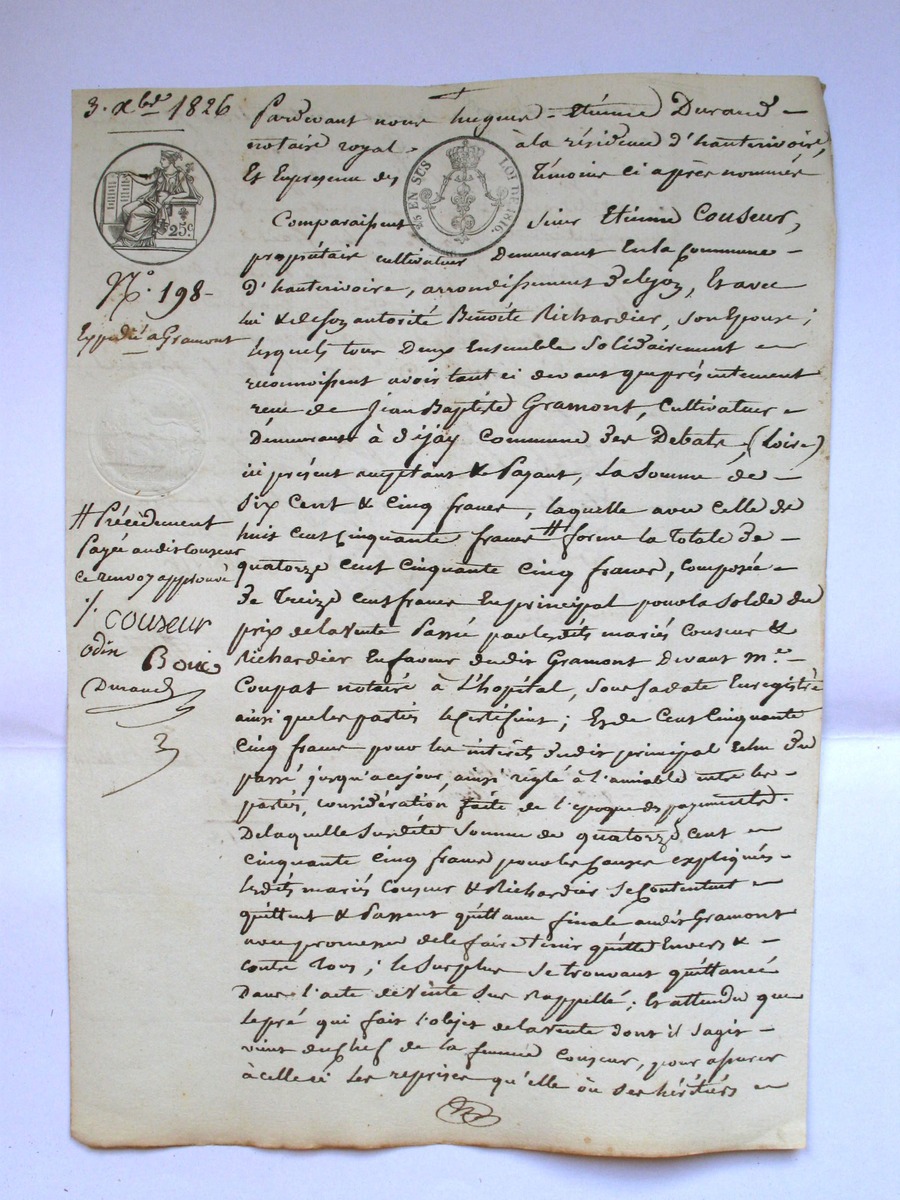 3. Xbre 1826
Pardevant nous hugues = Etienne Durand =
notaire royal. à la résidence d'hauterivoire,
Et En presence des Témoins ci après nommés
EN SUS LOI DE 1816.
25c
Comparaissent sieur Etienne Couseur,
propriétaire cultivateur Demeurant En la Commune =
d'hauterivoire, arrondissement de lyon, Et avec
N° 198 =
lui & de son autorité Benoite Richardier, son Epouse;
Expédié a Gramont
lesquels tous Deux Ensemble solidairement =
reconnoissent avoir tant ci devant que présentement
recu de Jean Baptiste Gramont, Cultivateur =
Demeurant à Commune des Debats, (Loire)
ici présent acceptant & Payant, La Somme de =
six Cent & Cinq francs, laquelle avec celle de
huit Cent Cinquante francs # forme la Totale de =
# Précédement
Payée audit Couseur
ce renvoy approuvé
./.
Couseur
odin
Durand
quatorze Cent Cinquante Cinq francs, Composée =
De Treize Cent francs En principal pour la solde du
prix de la vente Passé par lesdits mariés Couseur &
Richardier En faveur dudit Gramont Devant Me =
Coupat notaire à L'hopital, sous sa date Enregistré
ainsi que les parties le Certifient; Et de Cent Cinquante
cinq francs pour les intérêts dudit principal du
passé jusqu'a ce jour, ainsi réglé à l'amiable entre les =
parties, considération faite de l'epoque des payements.
De laquelle Susdite Somme de quatorze Cent =
Cinquante Cinq francs pour les Causes expliqués =
Lesdits mariés Couseur & Richardier se Contentent =
quittent & Passent quittance finale audit Gramont
avec promesse de le faire tenir quitte Envers & =
contre Tous; le Surplus se trouvant quittancé
Dans l'acte de Vente Sus Rappellé; Et attendu que
le pré qui fait l'objet de la vente dont il s'agit =
vient du Chef de la femme Couseur, pour assurer
à celle ci les reprises qu'elle ou ses héritiers =